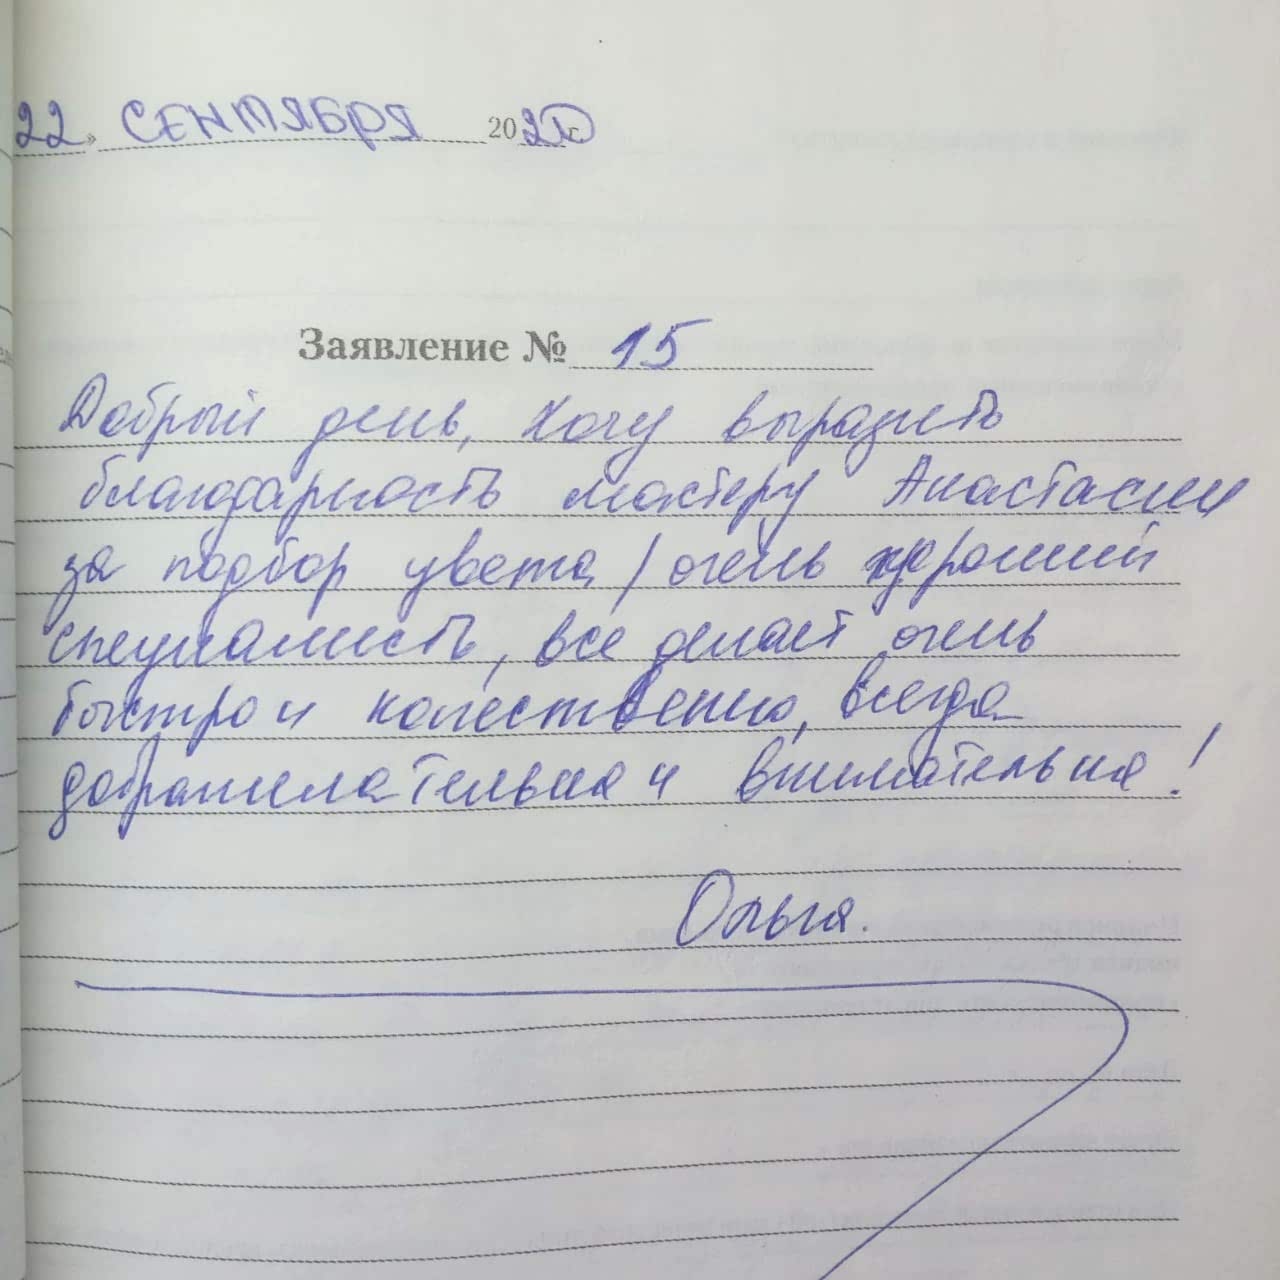 22» СЕНТЯБРЯ 2020г.
Заявление № 15
Добрый день, хочу выразить
благодарность мастеру Анастасии
за подбор цвета, очень хороший
специалисть, все делает очень
быстро и качественно, всегда
доброжелательна и внимательна!
Ольга.